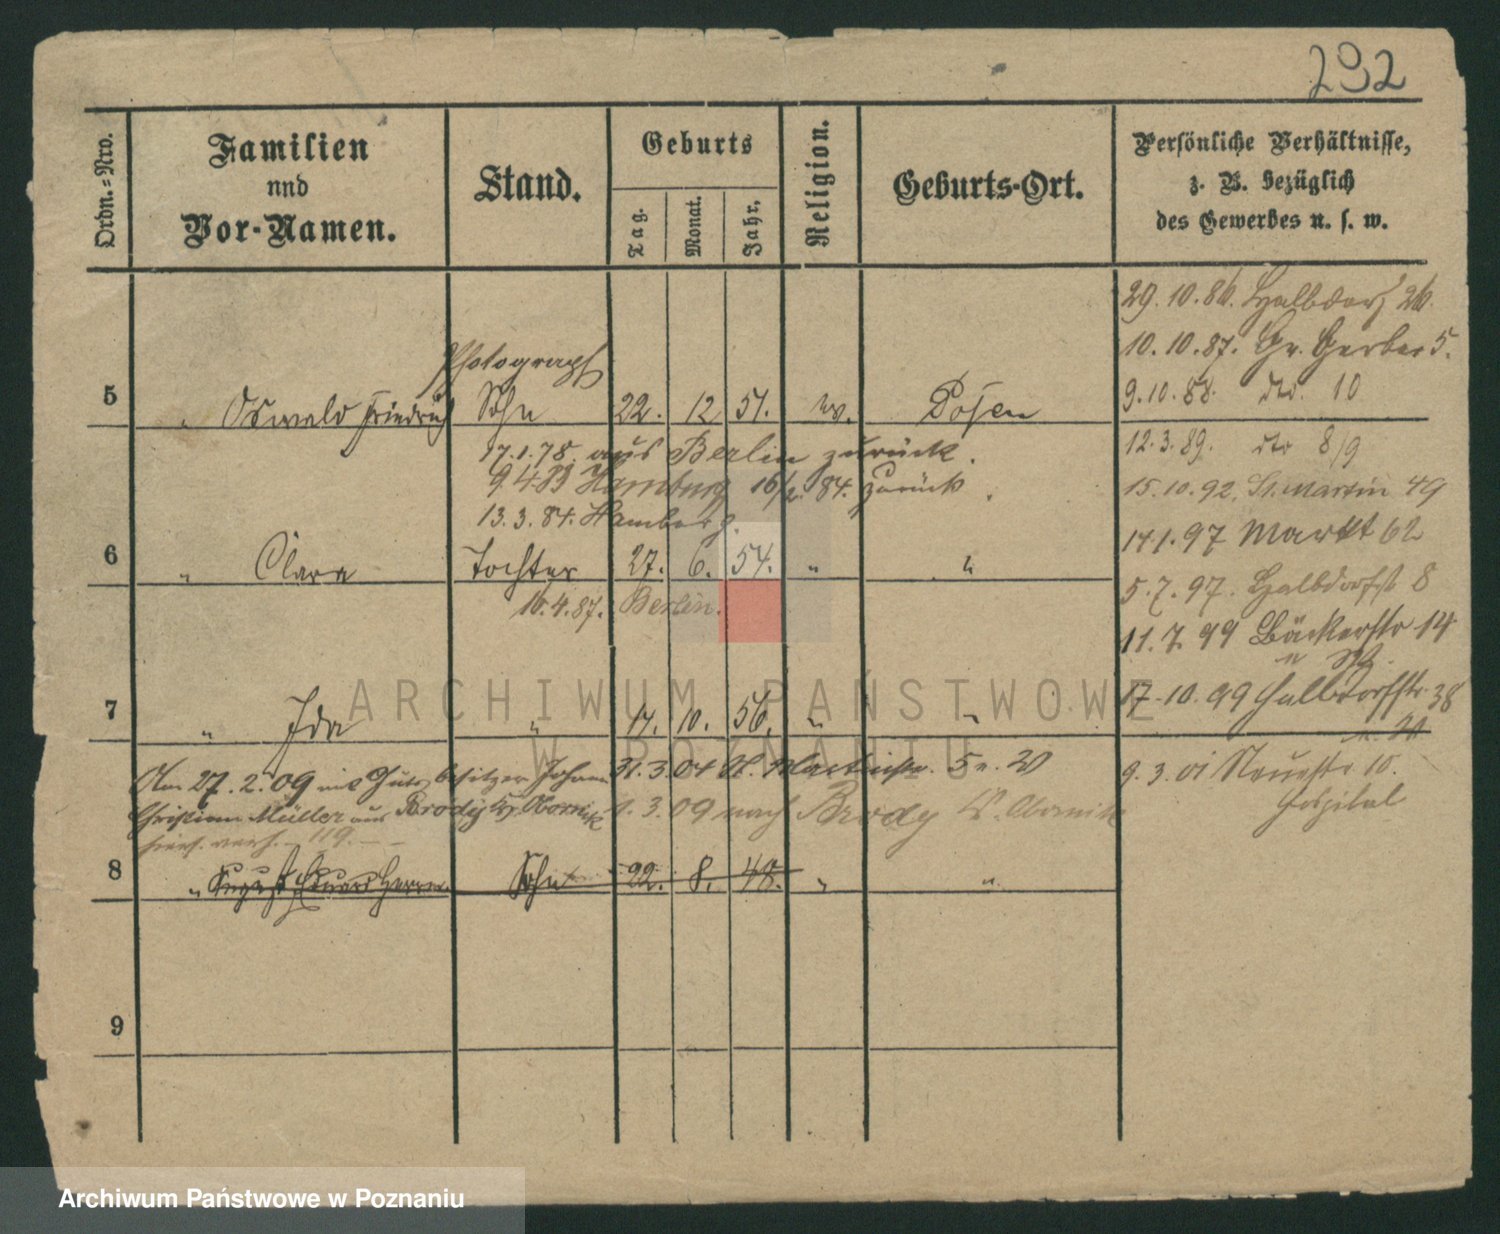 292
Ordn.-Nro.
Familien
und
Vor-Namen.
Stand.
Geburts
Tag.
Monat.
Jahr.
Religion.
Geburts-Ort.
Persönliche Verhältnisse,
z. B. bezüglich
des Gewerbes u. s. w.
29.10.86. Halbdorf 26.
10.10.87. Gr. Gerber 5.
9.10.88. dto. 10
Photograph
5 " Oswald Friedrich Sohn 22. 12 51. ev. Posen
17.1.78. aus Berlin zurück.
12.3.89. dto 8/9
9.4. Hamburg 16/2. 84. zurück.
15.10.92. St. Martin 49
13.3.84. Hamburg.
14.1.97 Markt 62
6 " Clara Tochter 27. 6. 54. " "
5.7.97. Halbdorfst 8
16.4.87. Berlin.
11.7.99 Bäckerstr 14
17.10.99 Halbdorfstr. 38
7 " Ida " 14. 10. 56. " "
Am 27.2.09 mit Gutsbesitzer Johann 31.3.04 St. Martinstr. 5 20
9.3.01 Neuestr 10.
Hospital
Christian Müller aus Brody Kr. Obornik 1.3.09 nach Brody Kr. Obornik
119.
8 " August Eduard Herrm. Sohn 22. 8. 48. " "
9
ARCHIWUM PAŃSTWOWE
W POZNANIU
Archiwum Państwowe w Poznaniu